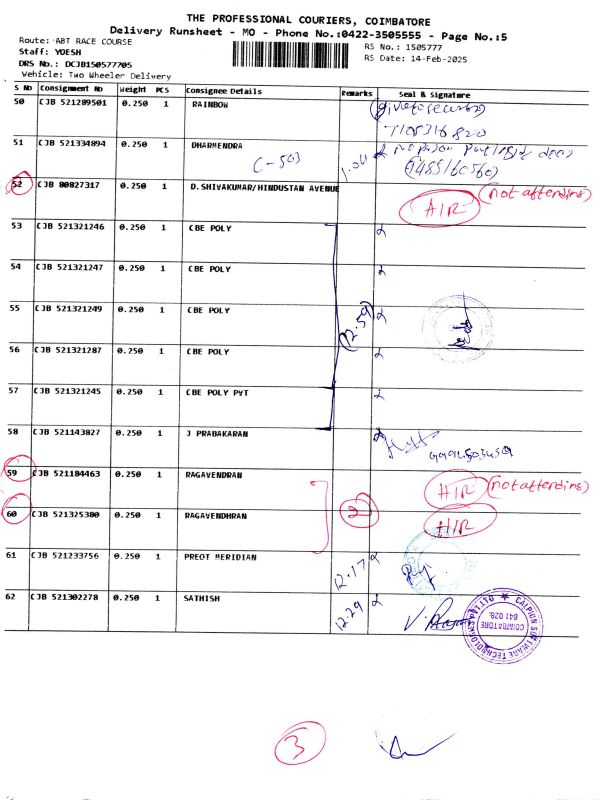 THE PROFESSIONAL COURIERS, COIMBATORE
Delivery Runsheet - MO - Phone No.:0422-3505555 - Page No.:5
Route: ABT RACE COURSE
Staff: YOESH
DRS No.: DCJB150577705
Vehicle: Two Wheeler Delivery
RS No.: 1505777
RS Date: 14-Feb-2025
S No Consignment No Weight PCS Consignee Details Remarks Seal & Signature
50 CJB 521289501 0.250 1 RAINBOW
51 CJB 521334894 0.250 1 DHARMENDRA
C-503
52 CJB 80827317 0.250 1 D.SHIVAKUMAR/HINDUSTAN AVENUE
AIR (not attending)
53 CJB 521321246 0.250 1 CBE POLY
54 CJB 521321247 0.250 1 CBE POLY
55 CJB 521321249 0.250 1 CBE POLY
(12.59)
56 CJB 521321287 0.250 1 CBE POLY
57 CJB 521321245 0.250 1 CBE POLY PVT
58 CJB 521143827 0.250 1 J PRABAKARAN
59 CJB 521184463 0.250 1 RAGAVENDRAN
AIR (not attending)
60 CJB 521325380 0.250 1 RAGAVENDHRAN 2 AIR
61 CJB 521233756 0.250 1 PREOT MERIDIAN 12.17
62 CJB 521302278 0.250 1 SATHISH 12.29
CALPION SOFTWARE TECHNOLOGIES PVT. LTD
COIMBATORE
641 028.
3